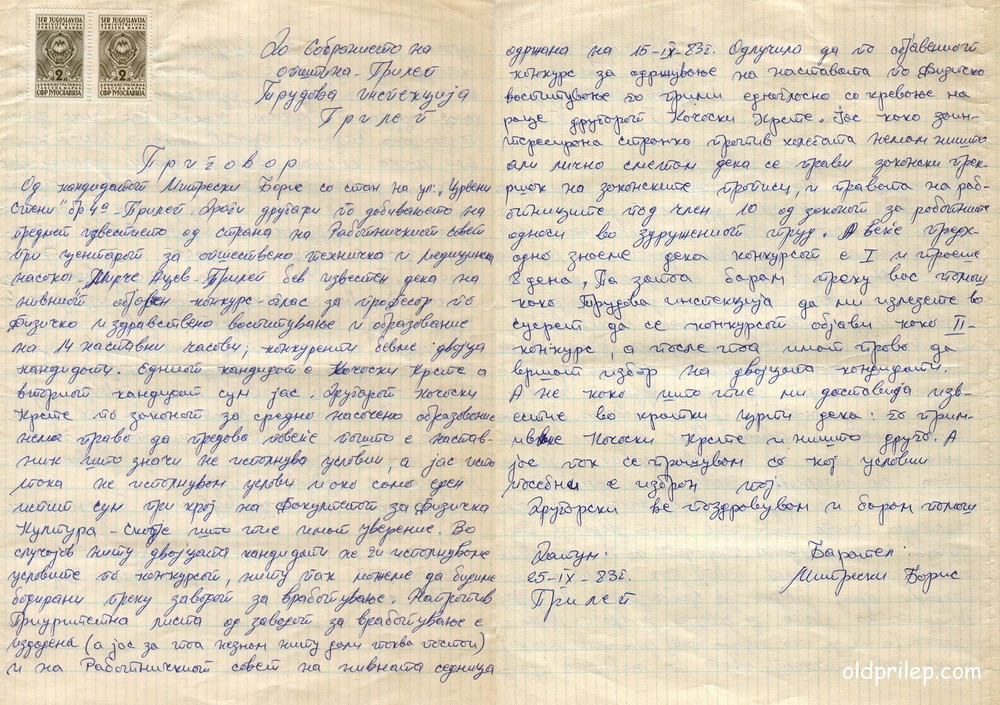 SFR JUGOSLAVIJA
ADMINISTRATIVNA
TAKSENA MARKA
2
СФР ЈУГОСЛАВИЈА
SFR JUGOSLAVIJA
ADMINISTRATIVNA
TAKSENA MARKA
2
СФР ЈУГОСЛАВИЈА
До Собранието на
општина - Прилеп
Трудова инспекција
Прилеп
Приговор
Од кандидатот Митрески Борис со стан на ул. „Црвени
Стени" бр 4а - Прилеп. Драги другари по добивањето на
предмет известието од страна на Работничкиот совет
при центарот за општествено техничка и медицинска
насока - Мирче Ацев - Прилеп бев известен дека на
нивниот објавен конкурс-оглас за професор по
физичко и здравствено воспитување и образование
на 14 наставни часови; конкуренти бевме двајца
кандидати. Едниот кандидат е Кочоски Крсте а
вториот кандидат сум јас. Другарот Кочоски
Крсте по законот за средно насочено образование
нема право да предава повеќе пошто е настав-
ник што значи не исполнува услови, а јас исто
така не исполнувам услови иако само еден
испит сум при крај на Факултетот за Физичка
Култура - Скопје што тие имат уверение. Во
случајов ниту двајцата кандидати не ги исполнуваме
условите по конкурсот, ниту пак можеме да бидиме
бодирани преку заводот за вработување. Напротив
Приуритетна листа од заводот за вработување е
издадена (а јас за тоа незнам ниту дали таква постои)
и на Работничкиот совет на нивната седница
одржана на 15-IX-83г. Одлучила да по објавениот
конкурс за одржување на наставата по Физичко
воспитување го прими едногласно со кревање на
раце другарот Кочоски Крсте. Јас како заин-
тересирана странка против колегата немам ништо
али лично сметам дека се прави законски прек-
ршок на законските прописи, и правата на раб-
отниците под член 10 од законот за работните
односи во здружениот труд. А веќе предх-
одно знаеме дека конкурсот е I и траеше
8 дена, Па затоа барам преку вас помош
како Трудова инспекција да ми излезете во
сусрет да се конкурсот објави како II-
конкурс, а после тоа имат право да
вршат избор на двајцата кандидати.
А не како што тие ми доставија изв-
естие во кратки црти дека: го прим-
ивме Кочоски Крсте и ништо друго. А
јас пак се прашувам со кој услови
посебни е избран тој.
Другарски ве поздравувам и барам помош
Датум: Барател:
25-IX-83г. Митрески Борис
Прилеп
oldprilep.com